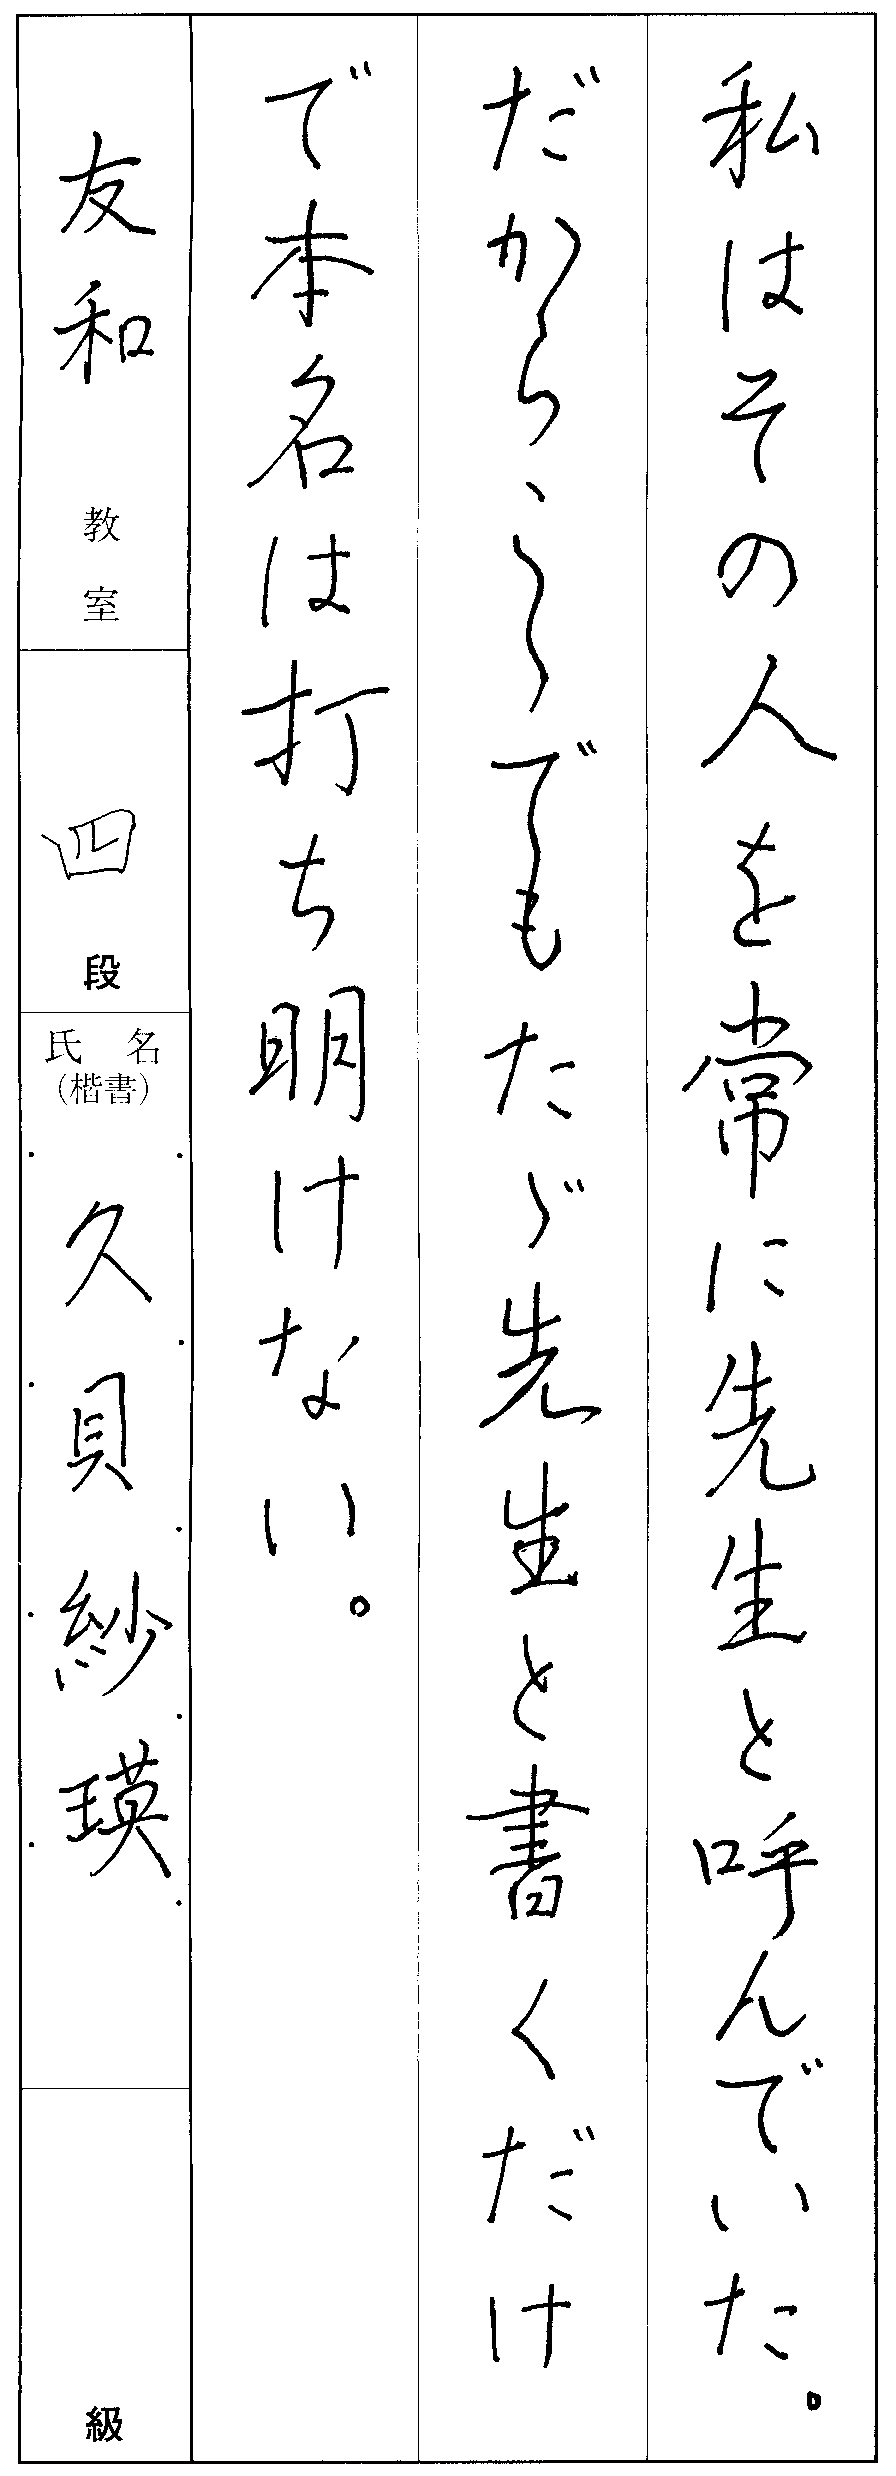 私はその人を常に先生と呼んでいた。
だから、こゝでもたゞ先生と書くだけ
で本名は打ち明けない。
友和 教室
四 段
氏名
(楷書)
久貝紗瑛
級